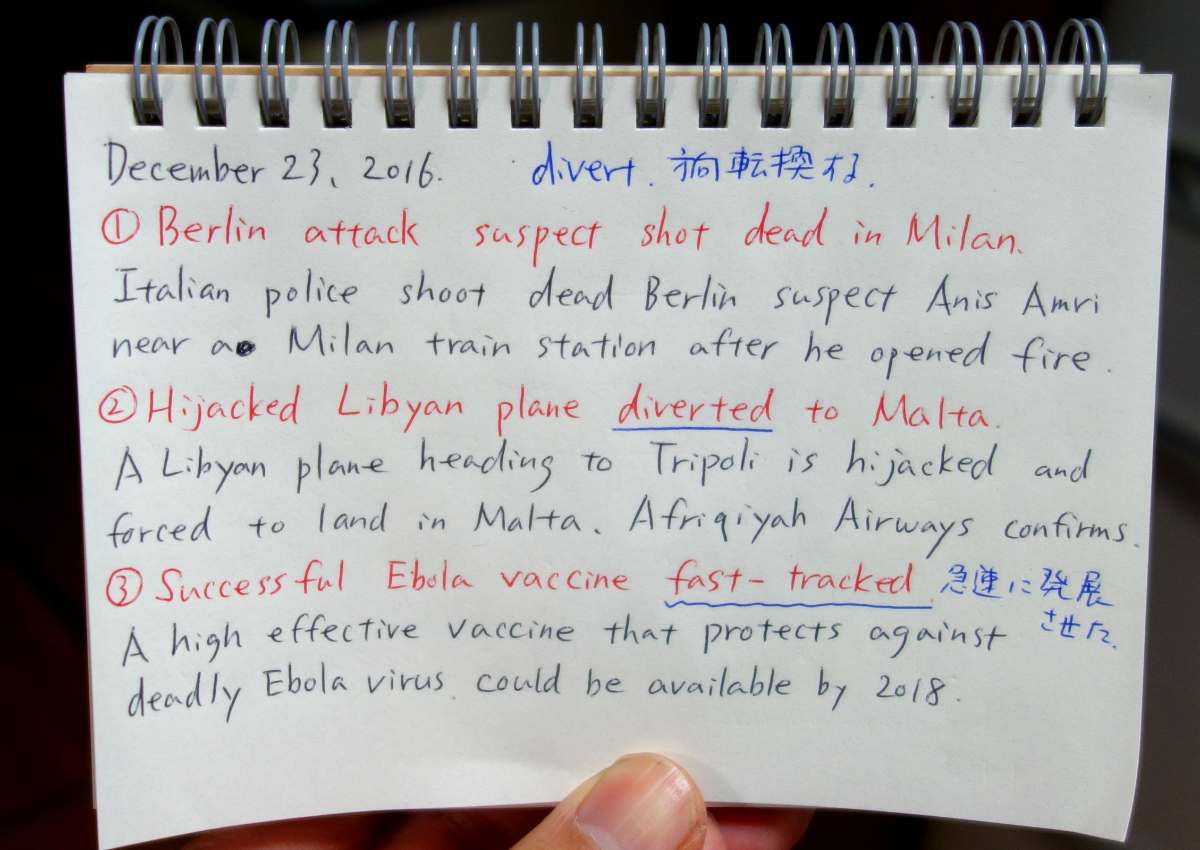 December 23, 2016. divert. 方向転換する.
① Berlin attack suspect shot dead in Milan.
Italian police shoot dead Berlin suspect Anis Amri
near a Milan train station after he opened fire.
② Hijacked Libyan plane diverted to Malta.
A Libyan plane heading to Tripoli is hijacked and
forced to land in Malta. Afriqiyah Airways confirms.
③ Successful Ebola vaccine fast-tracked 急速に発展
させた.
A high effective vaccine that protects against
deadly Ebola virus could be available by 2018.